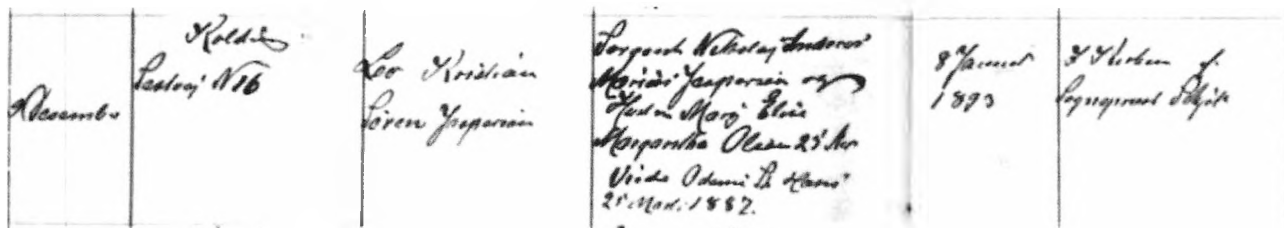 Kolding
N 16
December
Leo Kristian
Søren Jespersen
Sergent Nikolaj Andreas
Marius Jespersen og
Hustru Mary Elise
Margaretha Olsen 25 Aar
Viede Odense St Hans
25 Mar. 1887.
8 Januar
1893
I Kirken af
Sognepræst